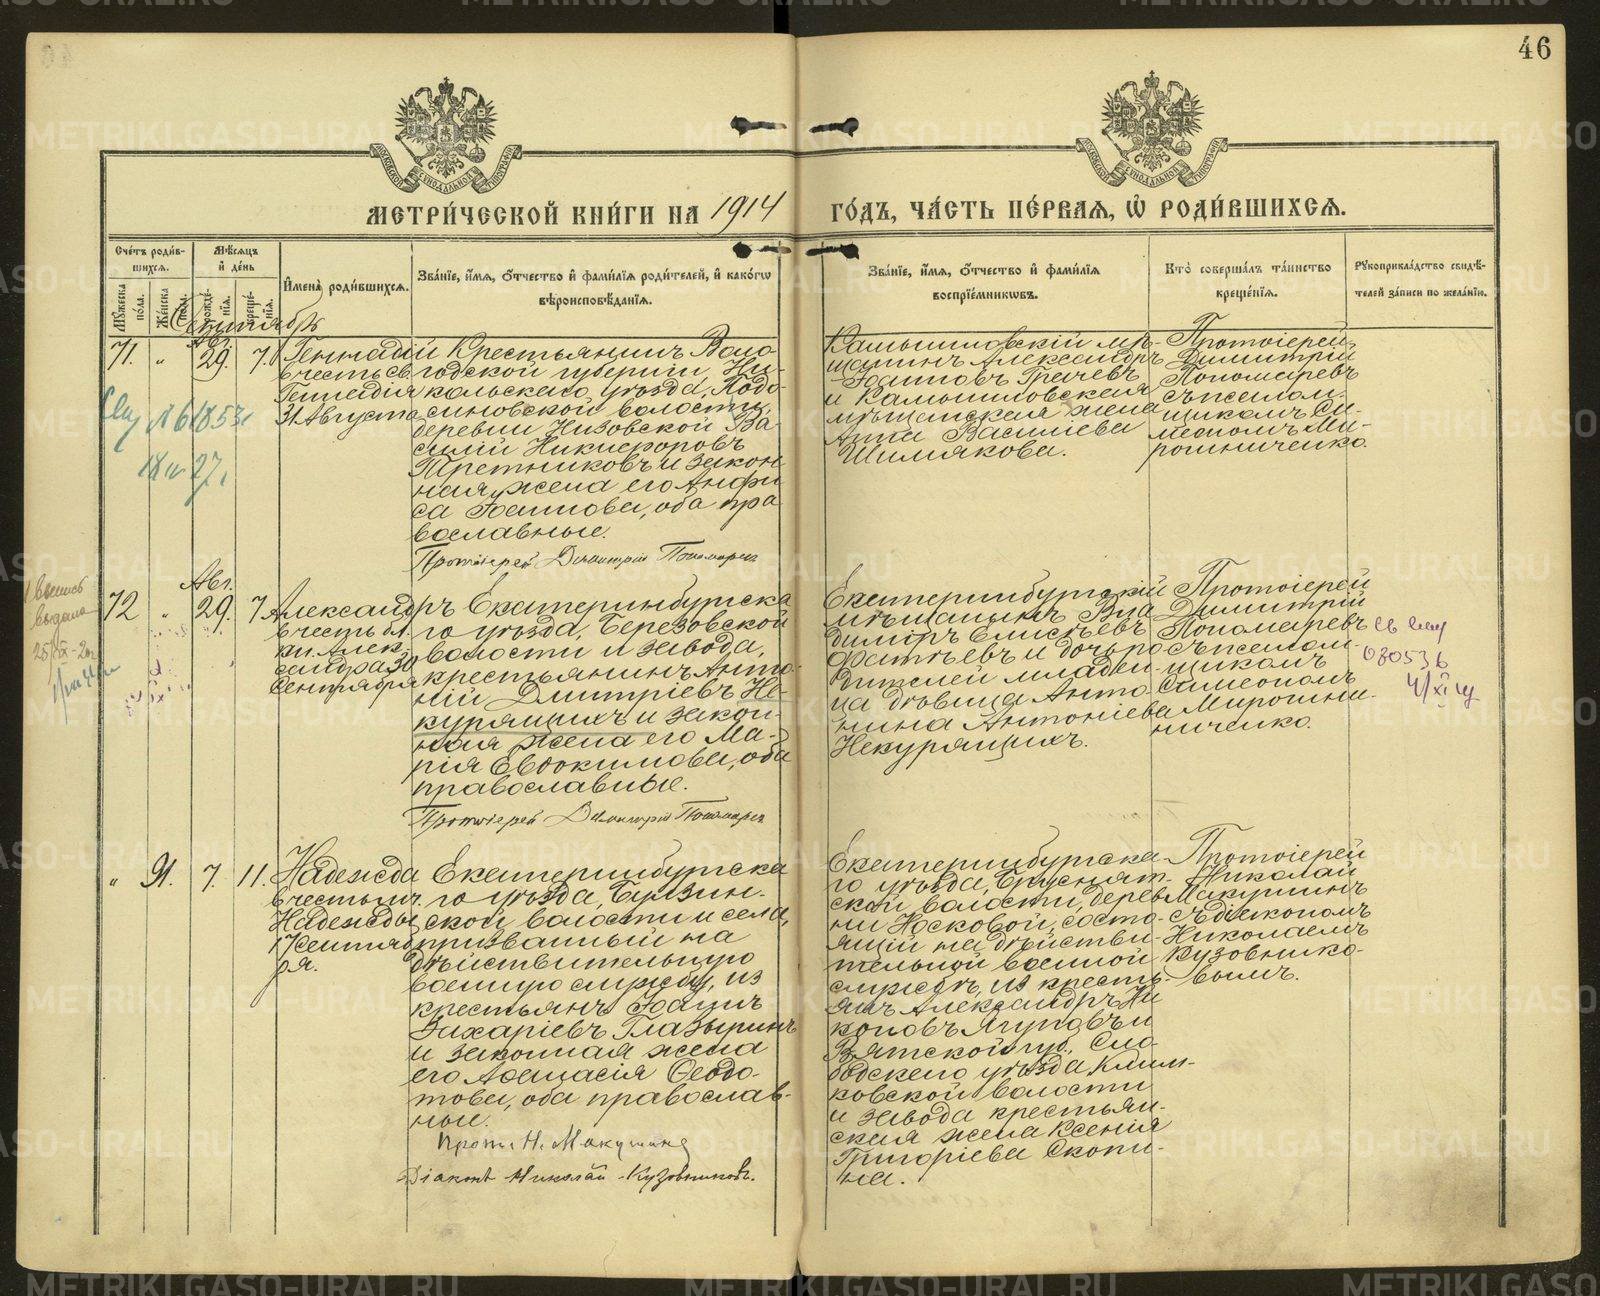 46
МЕТРИ́ЧЕСКОЙ КНИ́ГИ НА 1914 ГО́ДЪ, ЧА́СТЬ ПЕ́РВАѦ, Ѡ҆ РОДИ́ВШИХСѦ.
Сче́тъ роди́в-
шихсѧ.
Мꙋ́жеска по́ла.
Же́нска пол.
Мѣ́сѧцъ
и҆ де́нь
рожде́-
нїѧ.
креще́-
нїѧ.
И҆мена̀ роди́вшихсѧ.
Зва́нїе, и҆́мѧ, ѻ҆́тчество и҆ фами́лїѧ роди́телей, и҆ како́гѡ
вѣроисповѣ́данїѧ.
Зва́нїе, и҆́мѧ, ѻ҆́тчество и҆ фами́лїѧ
воспрїе́мникѡвъ.
Кто̀ соверша́лъ та́инство
креще́нїѧ.
Рꙋкоприкла́дство свидѣ́-
телей за́писи по жела́нїю.
Сентябрь
Авг.
71. „ 29. 7.
Геннадій
въ честь св.
Геннадія
31 Августа
18 и 27.
Крестьянинъ Воло
годской губерніи, Ни-
кольскаго уѣзда, Подо-
синовской волости,
деревни Низовской Ва-
силій Никифоровъ
Третниковъ и закон-
ная жена его Анфи
са Іоаннова, оба пра
вославные.
Протоіерей Димитрій Пономарев
Камышловскій мѣ-
щанинъ Александръ
Іоанновъ Грачевъ
и Камышловская
мѣщанская жена
Анна Василіева
Шимякова.
Протоіерей
Димитрій
Пономаревъ
съ псалом-
щикомъ Си-
меономъ Ми-
рошниченко.
Авг.
72 „ 29. 7.
Выпись
выдана
Александръ
въ честь бл.
кн. Алек-
сандра 30
Сентября
Екатеринбургска
го уѣзда, Березовской
волости и завода,
крестьянинъ Анто-
ній Дмитріевъ Не-
курящихъ и закон-
ная жена его Ма-
рія Евдокимова, оба
православные.
Протоіерей Димитрій Пономарев
Екатеринбургскій
мѣщанинъ Вла
диміръ Елисѣевъ
Фатѣевъ и дочь ро-
дителей младен-
ца дѣвица Анто-
нина Антоніева
Некурящихъ.
Протоіерей
Димитрій
Пономаревъ
съ псалом-
щикомъ
Симеономъ
Мирошни-
ниченко.
030536
„ 91. 7. 11.
Надежда
въ честь мч.
Надежды
17 Сентяб-
ря.
Екатеринбургска
го уѣзда, Бруин-
ской волости и села,
призванный на
дѣйствительную
военную службу, из
крестьянъ Іоаннъ
Захаріевъ Глазыринъ
и законная жена
его Аѳанасія Ѳеодо-
това, оба православ-
ные.
Прот. Н. Макушинъ
Діаконъ Николай Кузовниковъ.
Екатеринбургска-
го уѣзда, Бруснят-
ской волости, дерев
ни Носковой, состо-
ящій на дѣйстви-
тельной военной
службѣ, из кресть-
янъ Александръ Ни
коновъ Ягуповъ и
Вятской губ., Сло-
бодского уѣзда, Клим-
ковской волости
и завода крестьян-
ская жена Ксенія
Григоріева Скопи-
на.
Протоіерей
Николай
Макушинъ
съ діакономъ
Николаемъ
Кузовнико-
вымъ.
METRIKI.GASO-URAL.RU